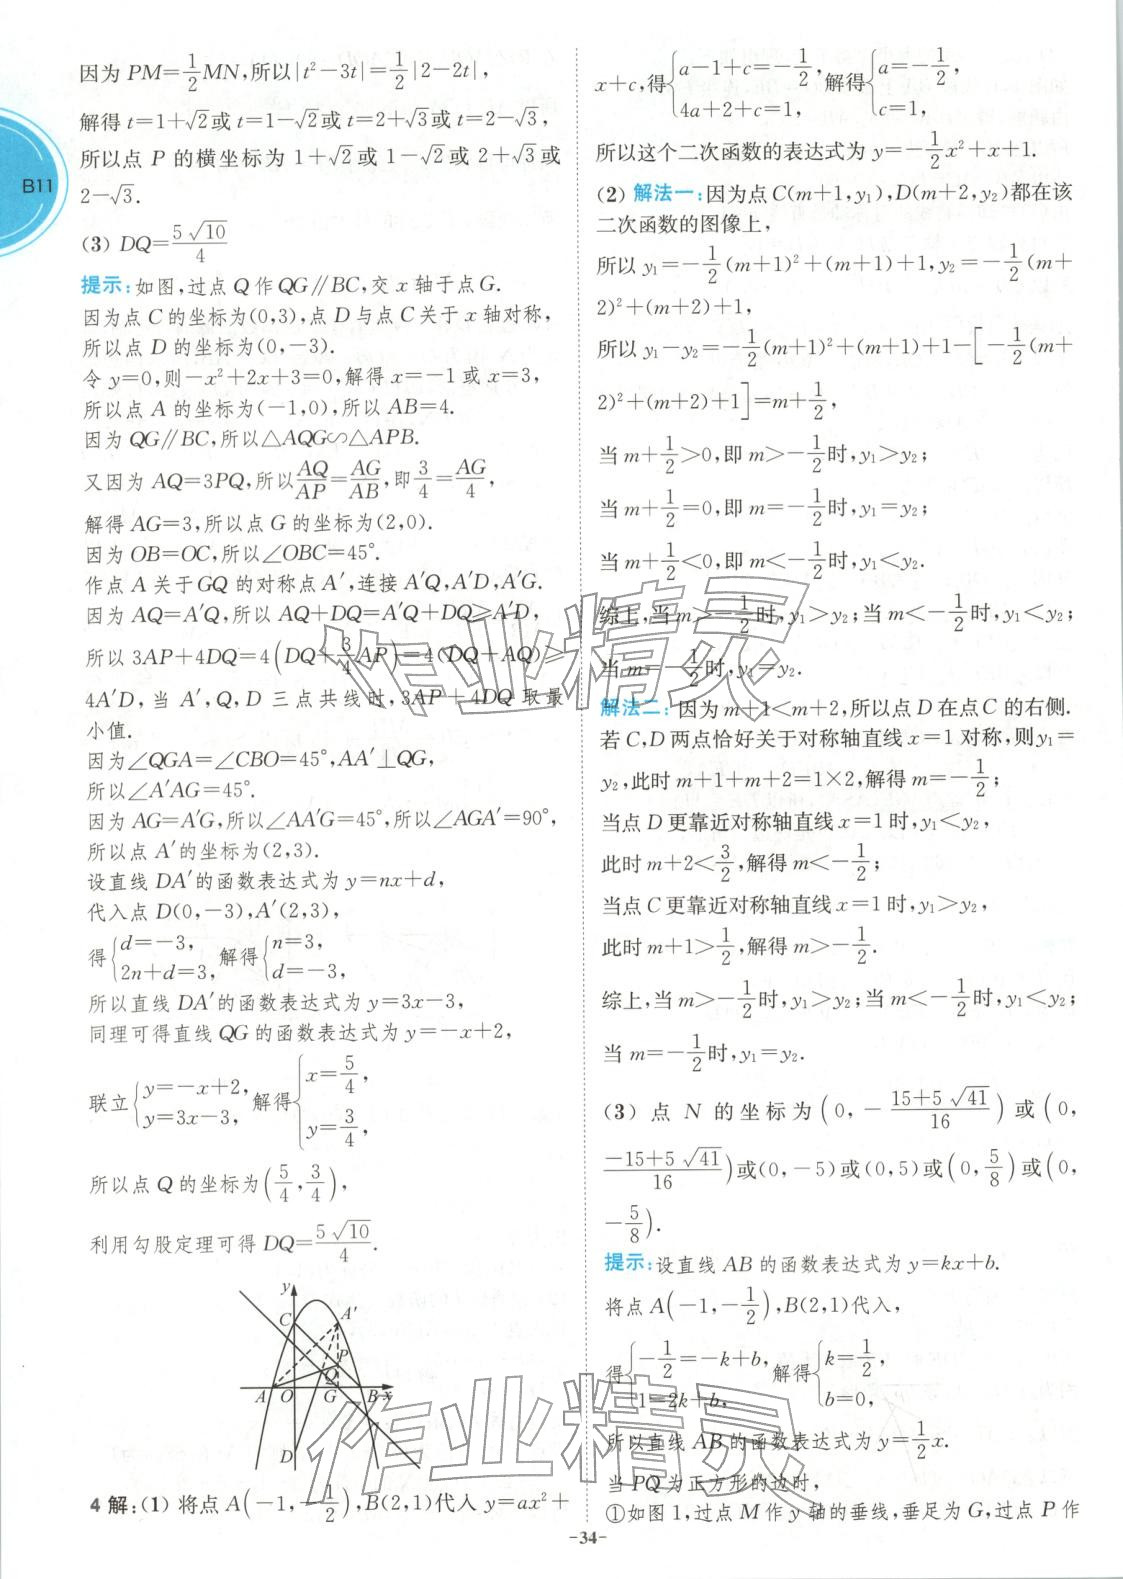 因为 PM=1/2MN,所以|t²-3t|=1/2|2-2t|,
解得 t=1+√2或 t=1-√2或 t=2+√3或 t=2-√3,
所以点 P 的横坐标为 1+√2或 1-√2或 2+√3或
2-√3.
(3) DQ=5√10/4
提示:如图,过点 Q 作 QG∥BC,交 x 轴于点 G.
因为点 C 的坐标为(0,3),点 D 与点 C 关于 x 轴对称,
所以点 D 的坐标为(0,-3).
令 y=0,则-x²+2x+3=0,解得 x=-1 或 x=3,
所以点 A 的坐标为(-1,0),所以 AB=4.
因为 QG∥BC,所以△AQG∽△APB.
又因为 AQ=3PQ,所以AQ/AP=AG/AB,即3/4=AG/4,
解得 AG=3,所以点 G 的坐标为(2,0).
因为 OB=OC,所以∠OBC=45°.
作点 A 关于 GQ 的对称点 A′,连接 A′Q,A′D,A′G.
因为 AQ=A′Q,所以 AQ+DQ=A′Q+DQ≥A′D,
所以 3AP+4DQ=4(DQ+3/4AP)=4(DQ+AQ)≥
4A′D,当 A′,Q,D 三点共线时,3AP+4DQ 取最
小值.
因为∠QGA=∠CBO=45°,AA′⊥QG,
所以∠A′AG=45°.
因为 AG=A′G,所以∠AA′G=45°,所以∠AGA′=90°,
所以点 A′的坐标为(2,3).
设直线 DA′的函数表达式为 y=nx+d,
代入点 D(0,-3),A′(2,3),
得{d=-3, 2n+d=3,解得{n=3, d=-3,
所以直线 DA′的函数表达式为 y=3x-3,
同理可得直线 QG 的函数表达式为 y=-x+2,
联立{y=-x+2, y=3x-3,解得{x=5/4, y=3/4,
所以点 Q 的坐标为(5/4,3/4),
利用勾股定理可得 DQ=5√10/4.
y
C A′
P
Q
A O G B x
D
4 解:(1) 将点 A(-1,-1/2),B(2,1)代入 y=ax²+
x+c,得{a-1+c=-1/2, 4a+2+c=1,解得{a=-1/2, c=1,
所以这个二次函数的表达式为 y=-1/2x²+x+1.
(2) 解法一:因为点 C(m+1,y₁),D(m+2,y₂)都在该
二次函数的图像上,
所以 y₁=-1/2(m+1)²+(m+1)+1,y₂=-1/2(m+
2)²+(m+2)+1,
所以 y₁-y₂=-1/2(m+1)²+(m+1)+1-[-1/2(m+
2)²+(m+2)+1]=m+1/2,
当 m+1/2>0,即 m>-1/2时,y₁>y₂;
当 m+1/2=0,即 m=-1/2时,y₁=y₂;
当 m+1/2<0,即 m<-1/2时,y₁<y₂.
综上,当 m>-1/2时,y₁>y₂;当 m<-1/2时,y₁<y₂;
当 m=-1/2时,y₁=y₂.
解法二:因为 m+1<m+2,所以点 D 在点 C 的右侧.
若 C,D 两点恰好关于对称轴直线 x=1 对称,则 y₁=
y₂,此时 m+1+m+2=1×2,解得 m=-1/2;
当点 D 更靠近对称轴直线 x=1 时,y₁<y₂,
此时 m+2<3/2,解得 m<-1/2;
当点 C 更靠近对称轴直线 x=1 时,y₁>y₂,
此时 m+1>1/2,解得 m>-1/2.
综上,当 m>-1/2时,y₁>y₂;当 m<-1/2时,y₁<y₂;
当 m=-1/2时,y₁=y₂.
(3) 点 N 的坐标为(0,-15+5√41/16)或(0,
-15+5√41/16)或(0,-5)或(0,5)或(0,5/8)或(0,
-5/8).
提示:设直线 AB 的函数表达式为 y=kx+b.
将点 A(-1,-1/2),B(2,1)代入,
得{-1/2=-k+b, 1=2k+b,解得{k=1/2, b=0,
所以直线 AB 的函数表达式为 y=1/2x.
当 PQ 为正方形的边时,
①如图 1,过点 M 作 y 轴的垂线,垂足为 G,过点 P 作
B11
-34-
作业精灵
作业精灵